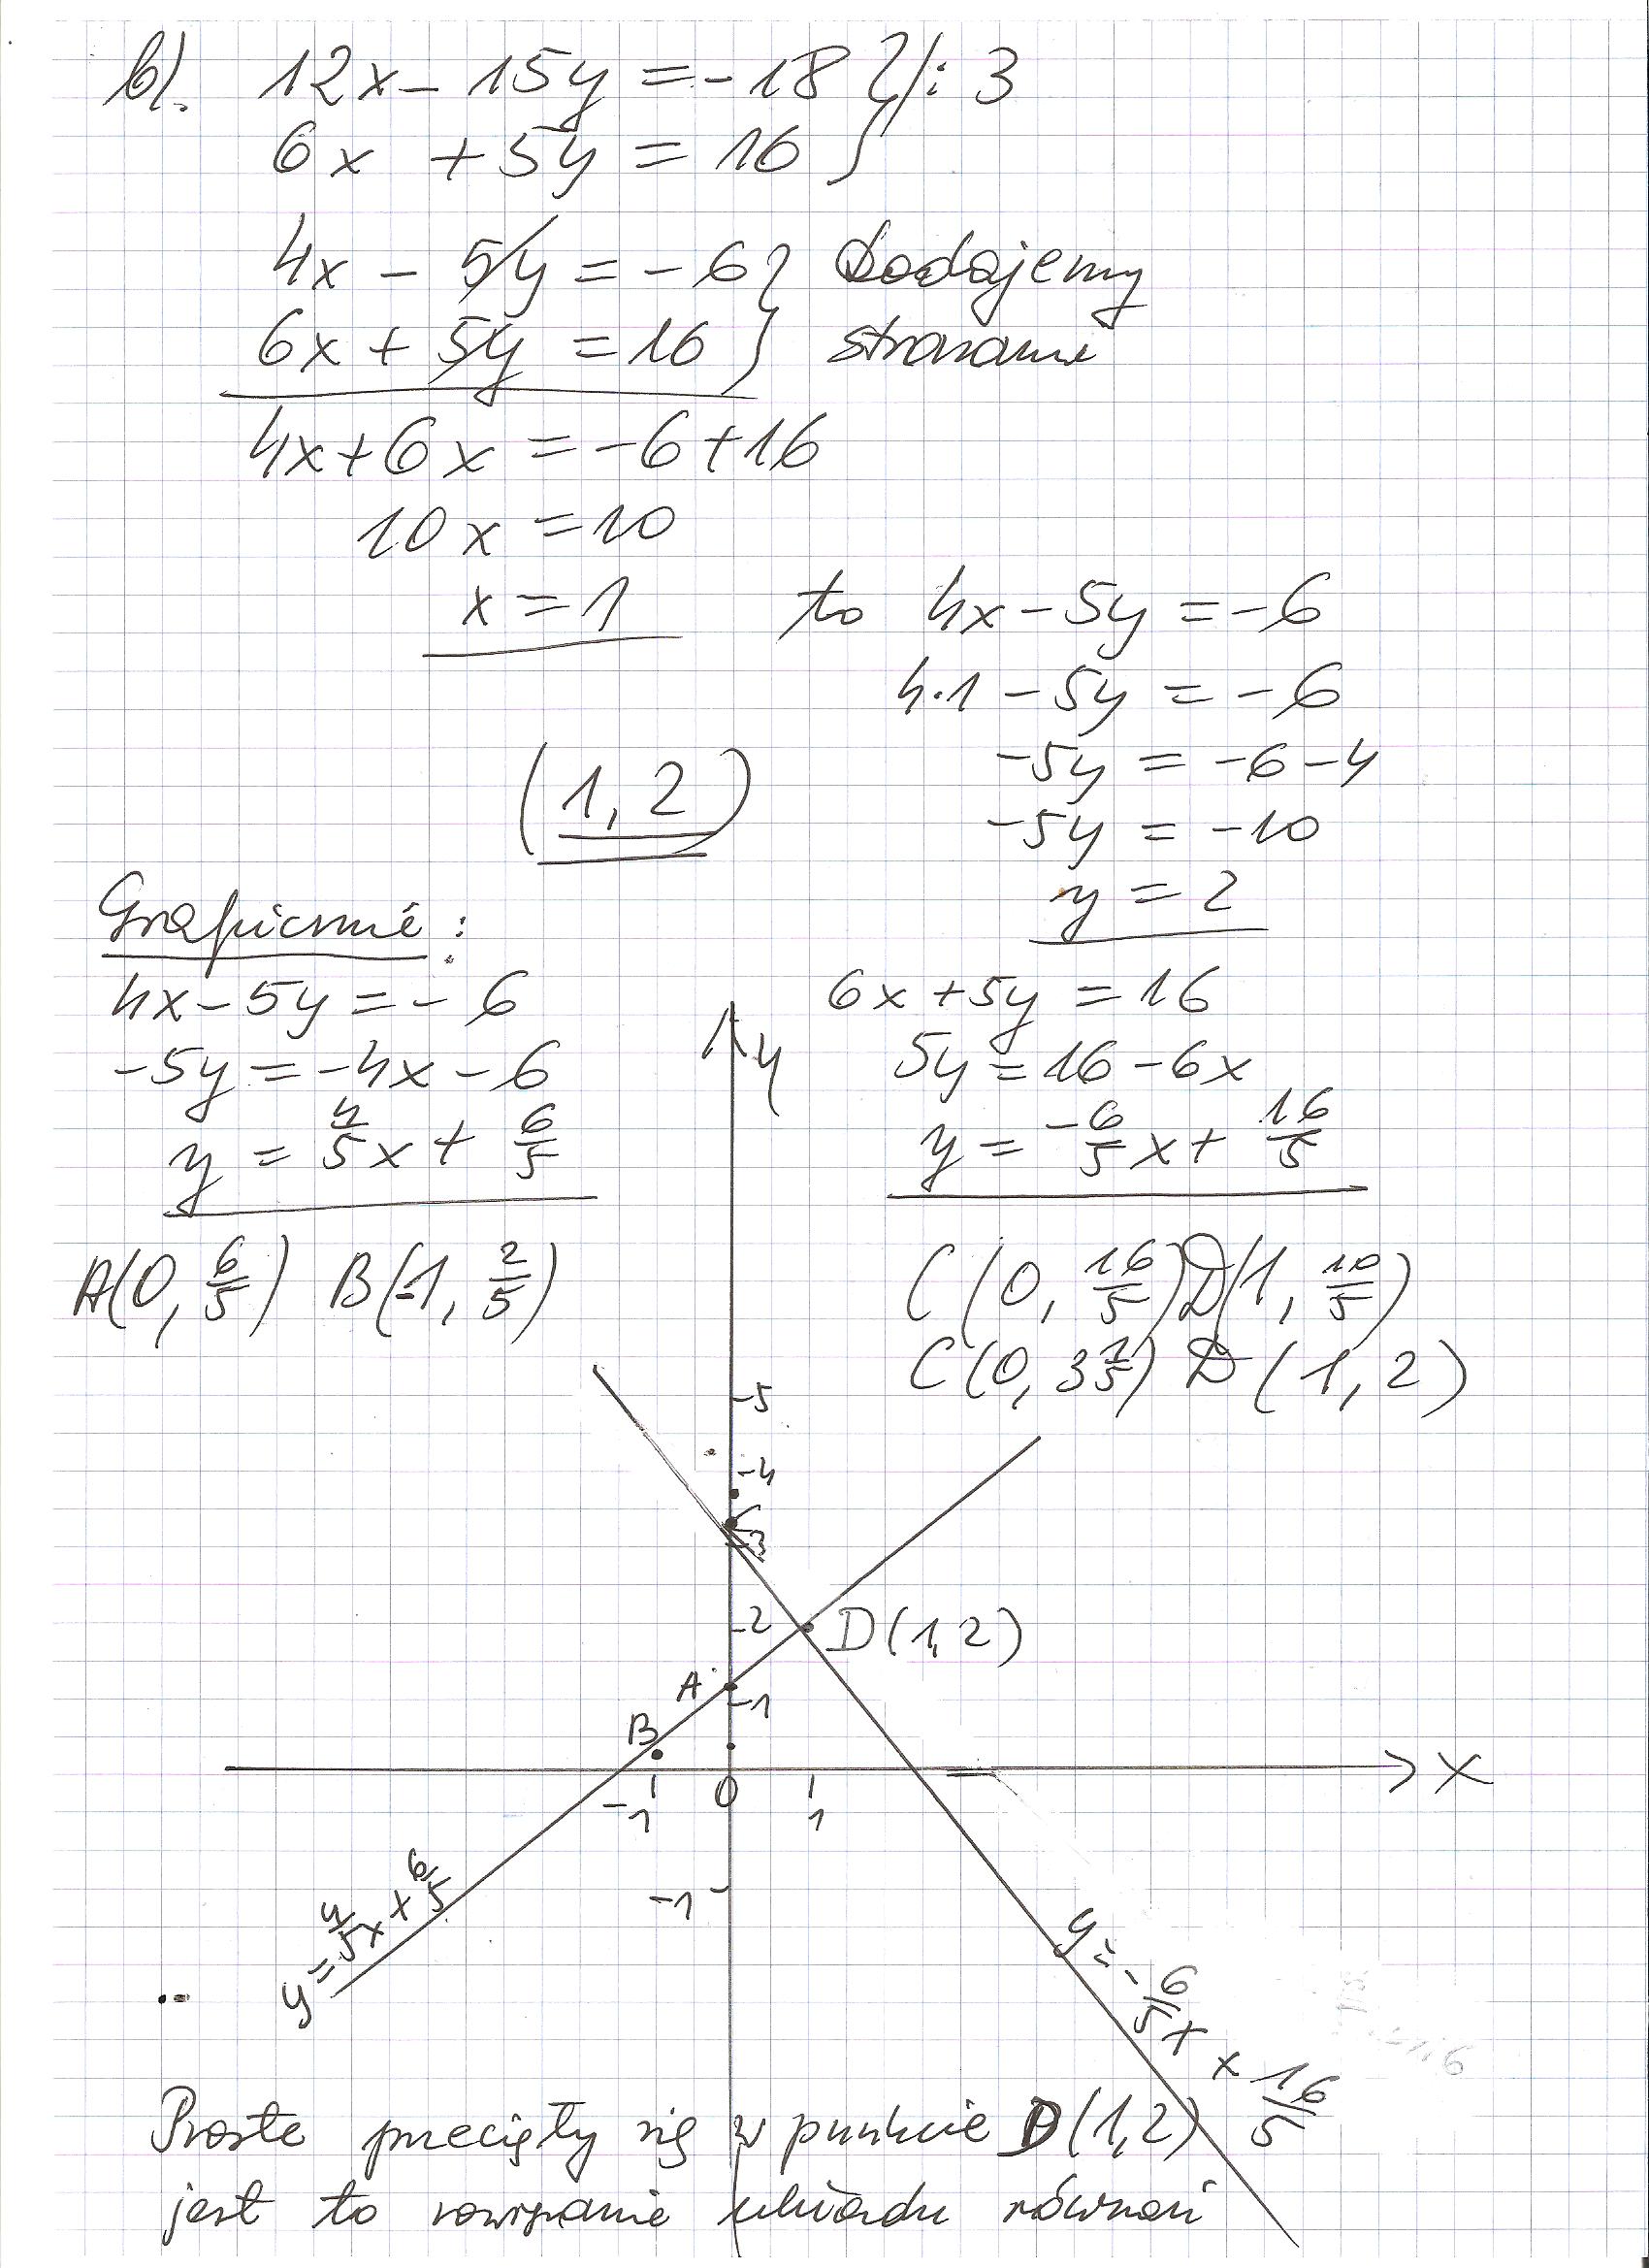 b). 12x - 15y = -18 } /: 3
6x + 5y = 16 }
4x - 5y = -6 } dodajemy
6x + 5y = 16 } stronami
4x + 6x = -6 + 16
10x = 10
x = 1 to 4x - 5y = -6
4·1 - 5y = -6
-5y = -6 - 4
-5y = -10
y = 2
(1, 2)
Graficznie:
4x - 5y = -6
-5y = -4x - 6
y = 4/5 x + 6/5
A(0, 6/5) B(-1, 2/5)
6x + 5y = 16
5y = 16 - 6x
y = -6/5 x + 16/5
C(0, 16/5) D(1, 10/5)
C(0, 3 1/5) D(1, 2)
y
-5
-4
C
-3
-2
D(1, 2)
A
-1
B
-1 0 1
x
-1
y = 4/5 x + 6/5
y = -6/5 x + 16/5
Proste przecięły się w punkcie D(1, 2)
jest to rozwiązanie układu równań